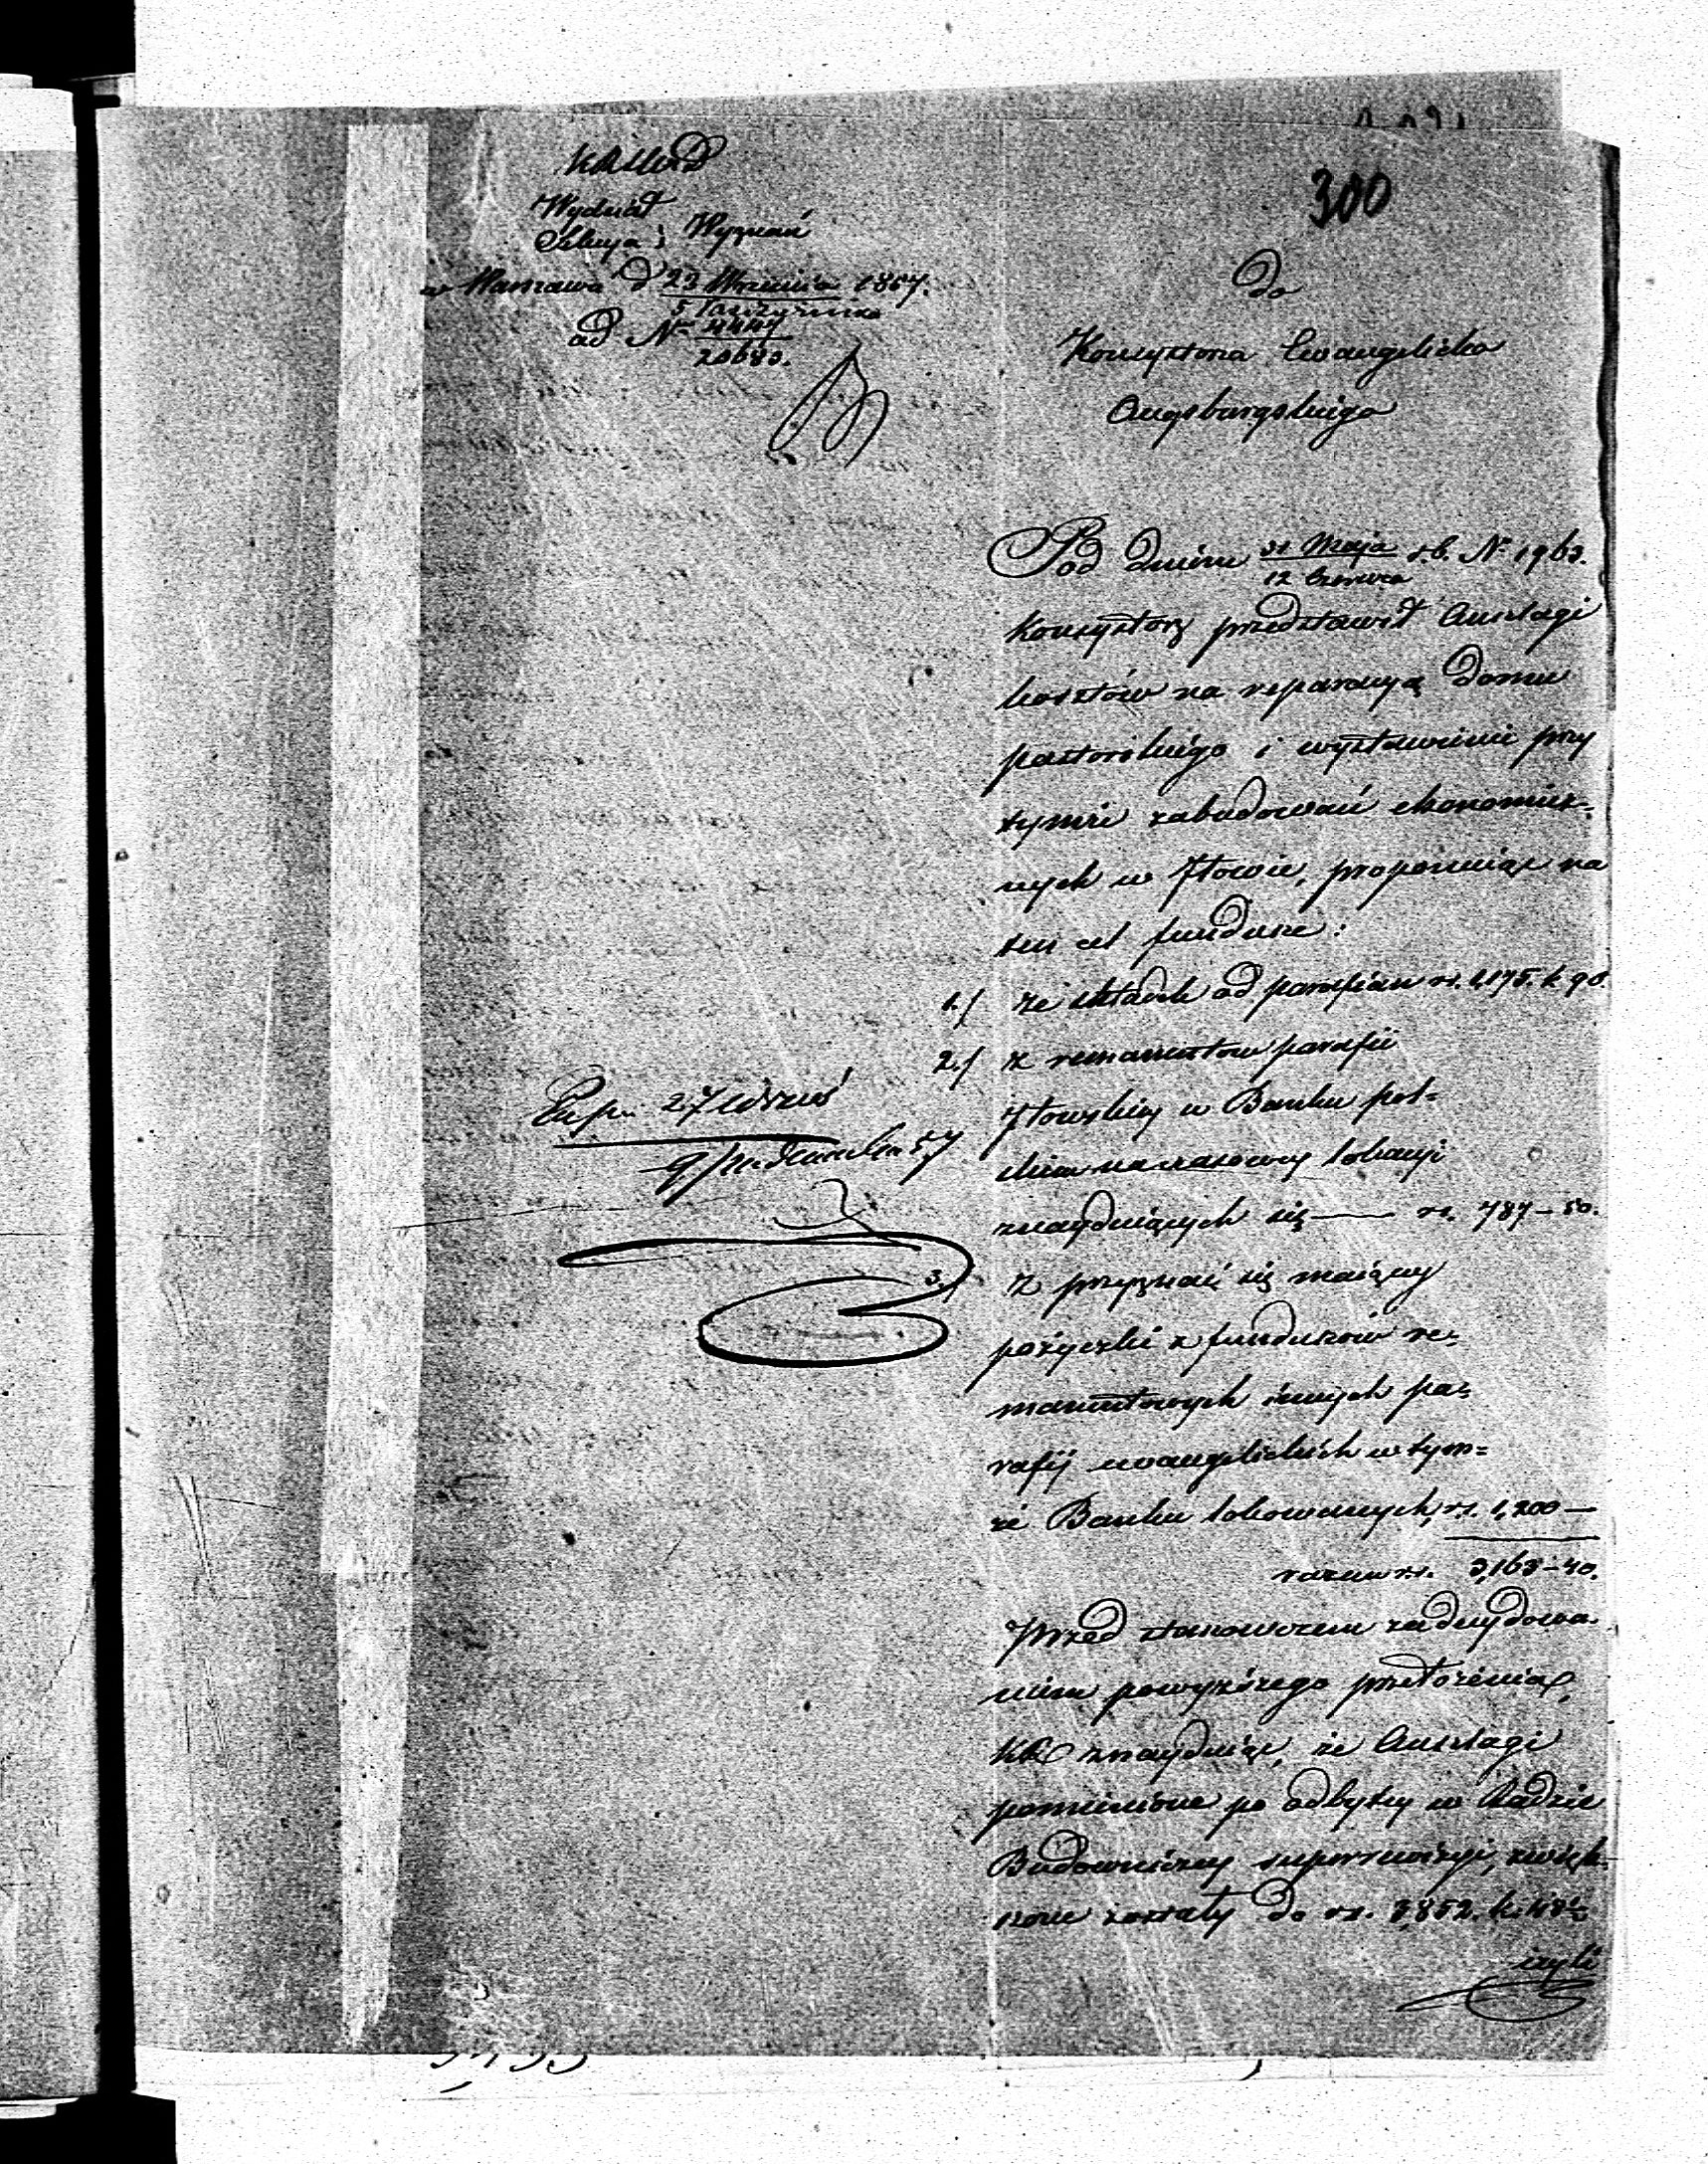 300
Wydział
Sekcya Wyznań
w Warszawie d 23 Września 1857.
5 Października
ad Nr 4447
20680.
Do
Konsystorza Ewangelicko
Augsburgskiego
Pod dniem 31 Maja r.b. Nr 1963.
12 Czerwca
Konsystorz przedstawił Anszlagi
kosztów na reparacyą Domu
pastorskiego i wystawienie przy
tymże zabudowań ekonomicz=
nych w Iłowie, proponuiąc na
ten cel fundusze:
1./ ze składek od parafian rs. 1,175. k 90.
2./ z remanentów parafii
Iłowskiey w Banku pol=
skim na czasowey lokacyi
znayduiących się — rs. 787–50.
3./ Z przyznać się maiącey
pożyczki z funduszów re=
manentowych innych pa=
rafij ewangelickich w tym=
że Banku lokowanych, rs. 1,200 —
razem rs. 3,163–40.
Przed stanowczem zadecydowa=
niem powyższego przełożenia,
KR znayduiąc, że Anszlagi
pomienione po odbytey w Radzie
Budowniczey superrewizyi, zwięk=
szone zostały do rs. 3,852. k.
czyli
Exp. 27